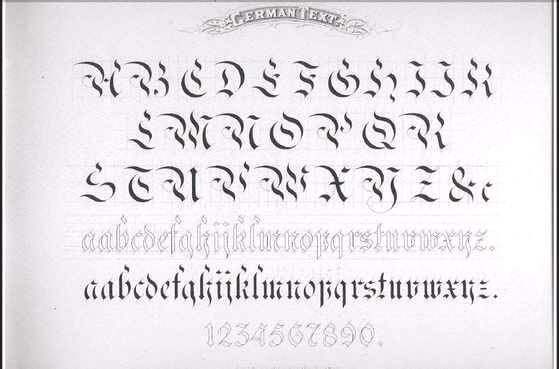 GERMAN TEXT.
A B C D E F G H I J K
L M N O P Q R
S T U V W X Y Z & c
aabcdefghijklmnopqrstuvwxyz.
aabcdefghijklmnopqrstuvwxyz.
1234567890.